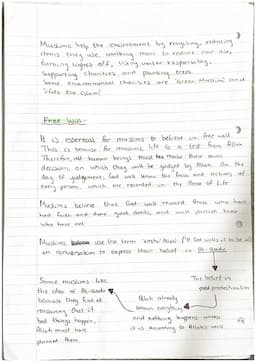 Muslims help the environment by recycling, reducing
items they use, walking more to reduce car use,
turning lights off, using water responsibly,
supporting charities and planting trees.
Some environmental charities are 'Green Muslim' and
Free Will-
It is essential for muslims to believe in free will
This is because for muslims life is a test from Allah
Therefore, all human beings must make their own
decisions, on which they will be judged by Allah. On the
day of judgement, God will know the faith and actions of
every person, which are recorded in the Book of Life
Muslims believe that God will reward those who have
had faith and done good deeds, and will punish those
who have not.
Muslims use the term 'insha'Allah' ('if God wills it to be so')
in conversation to express their belief in Al-Qadr
The belief in
god predestination
Allah already
knows everything
and nothing happens unless
it is according to Allah's will
Some muslims like
the idea of Al-Qadr
because they find it
reassuring that if
bad things happen,
Allah must have
planned them.